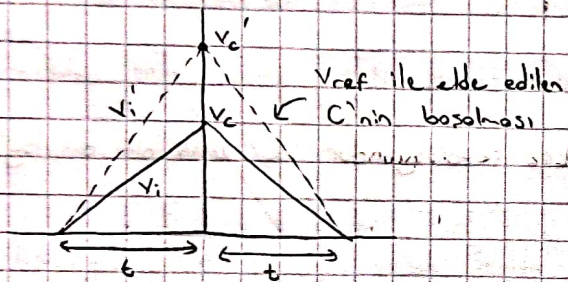 Vc'
Vref ile elde edilen
C'nin boşalması
Vi'
Vc
Vi
t
t